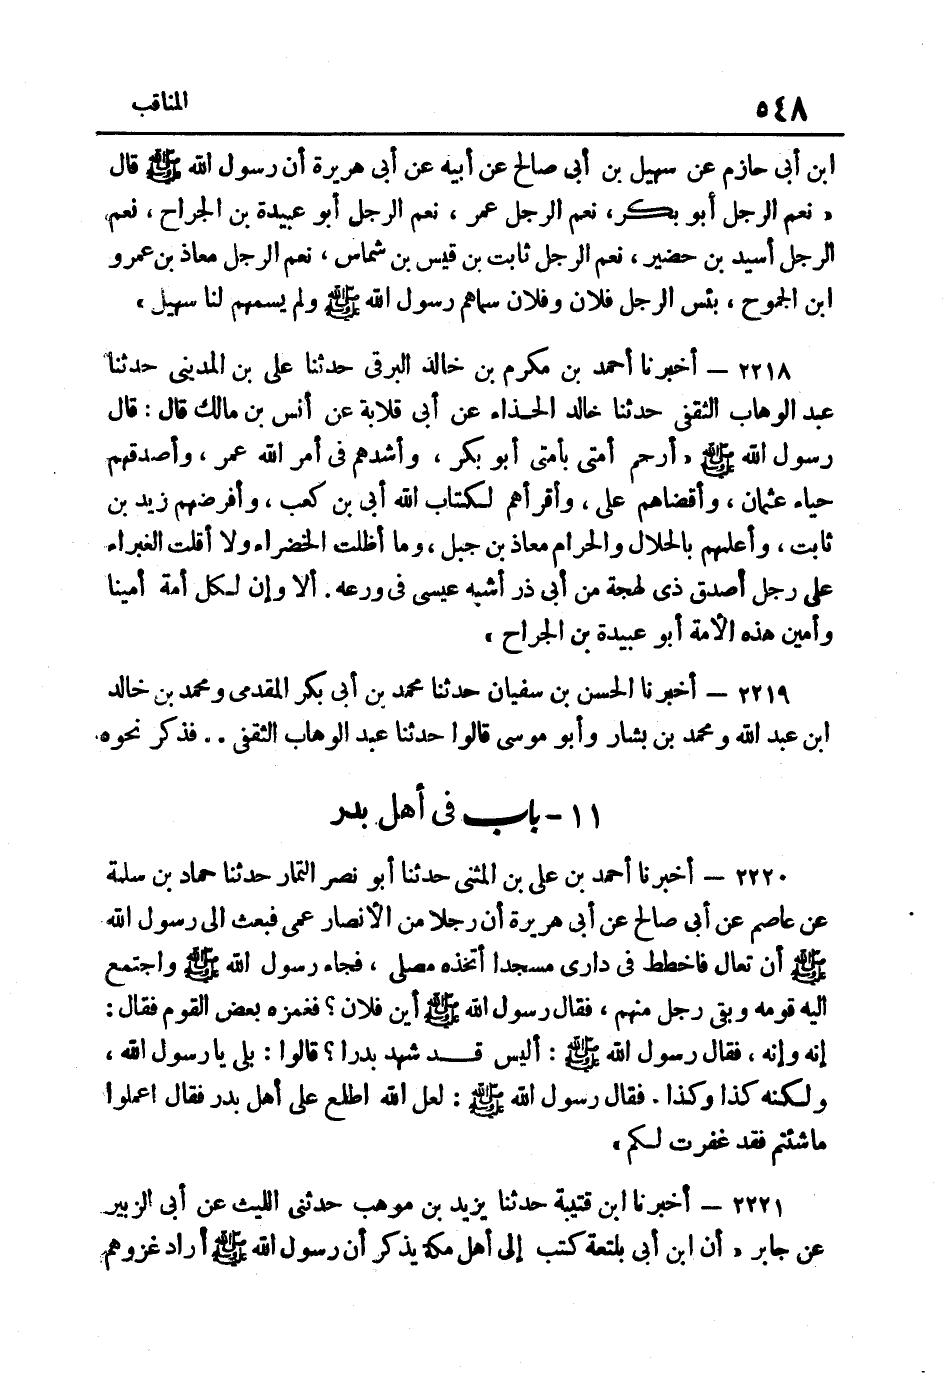 ٥٤٨
المناقب
ابن أبى حازم عن سهيل بن أبى صالح عن أبيه عن أبى هريرة أن رسول الله ﷺ قال
« نعم الرجل أبو بكر، نعم الرجل عمر ، نعم الرجل أبو عبيدة بن الجراح ، نعم
الرجل أسيد بن حضير ، نعم الرجل ثابت بن قيس بن شماس ، نعم الرجل معاذ بن عمرو
ابن الجموح ، بئس الرجل فلان وفلان سماهم رسول الله ﷺ ولم يسمهم لنا سهيل »
٢٢١٨ – أخبرنا أحمد بن مكرم بن خالد البرقى حدثنا على بن المدينى حدثنا
عبد الوهاب الثقفى حدثنا خالد الحذاء عن أبى قلابة عن أنس بن مالك قال : قال
رسول الله ﷺ « أرحم أمتى بأمتى أبو بكر ، وأشدهم فى أمر الله عمر ، وأصدقهم
حياء عثمان ، وأقضاهم على ، وأقرأهم لكتاب الله أبى بن كعب ، وأفرضهم زيد بن
ثابت ، وأعلمهم بالحلال والحرام معاذ بن جبل ، وما أظلت الخضراء ولا أقلت الغبراء
على رجل أصدق ذى لهجة من أبى ذر أشبه عيسى فى ورعه. ألا وإن لكل أمة أمينا
وأمين هذه الأمة أبو عبيدة بن الجراح »
٢٢١٩ – أخبرنا الحسن بن سفيان حدثنا محمد بن أبى بكر المقدمى ومحمد بن خالد
ابن عبد الله ومحمد بن بشار وأبو موسى قالوا حدثنا عبد الوهاب الثقفى .. فذكر نحوه.
١١ - باب فى أهل بدر
٢٢٢٠ – أخبرنا أحمد بن على بن المثنى حدثنا أبو نصر التمار حدثنا حماد بن سلمة
عن عاصم عن أبى صالح عن أبى هريرة أن رجلا من الأنصار عمى فبعث الى رسول الله
ﷺ أن تعال فاخطط فى دارى مسجدا أتخذه مصلى ، فجاء رسول الله ﷺ واجتمع
اليه قومه وبقى رجل منهم ، فقال رسول الله ﷺ أين فلان ؟ فغمزه بعض القوم فقال :
إنه وإنه ، فقال رسول الله ﷺ : أليس قد شهد بدرا ؟ قالوا : بلى يا رسول الله ،
ولكنه كذا وكذا . فقال رسول الله ﷺ : لعل الله اطلع على أهل بدر فقال اعملوا
ماشئتم فقد غفرت لكم »
٢٢٢١ – أخبرنا ابن قتيبة حدثنا يزيد بن موهب حدثنى الليث عن أبى الزبير
عن جابر « أن ابن أبى بلتعة كتب إلى أهل مكة يذكر أن رسول الله ﷺ أراد غزوهم